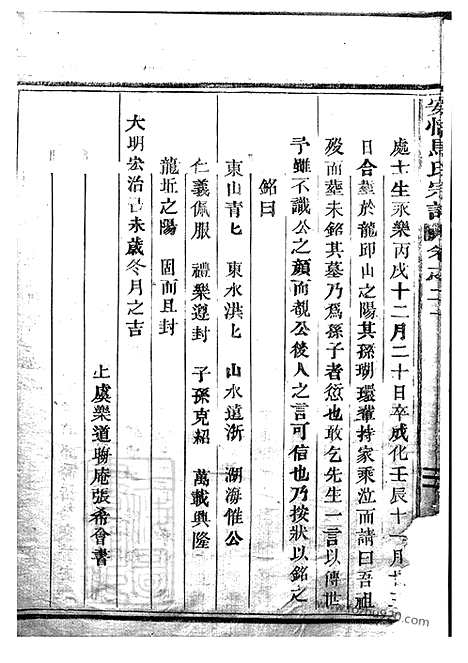 處士生永樂丙戌十二月二十日卒成化壬辰十一月十
日合葬於龍卭山之陽其孫瑚環輩持家乘泣而請曰吾祖
歿而葬未銘其墓乃爲孫子者愆也敢乞先生一言以傳世
予雖不識公之顏而覩公後人之言可信也乃按狀以銘之
銘曰
東山青匕 東水洪匕 山水遠浙 湖海惟公
仁義佩服 禮樂遵封 子孫克紹 萬載興隆
龍坵之陽 固而且封
大明宏治己未歲冬月之吉
上虞樂道聯庵張希會書
馬氏宗譜